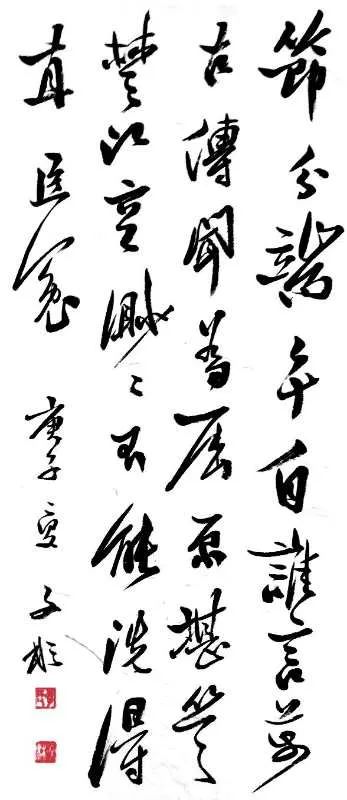 節分端午自誰言萬
古傳聞為屈原堪笑
楚江空渺々不能洗得
直臣冤 庚子夏 子